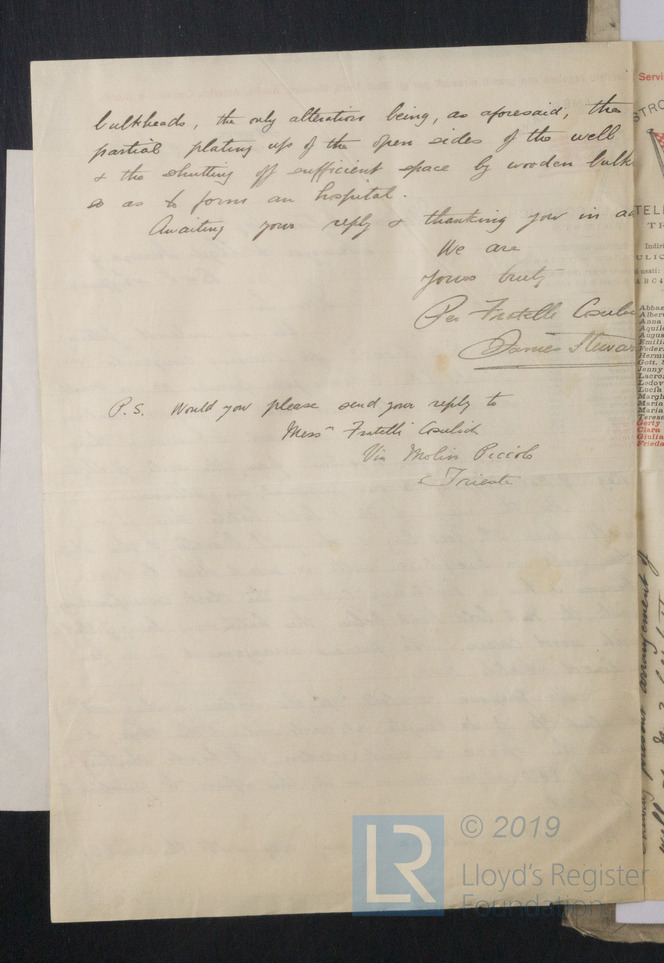 bulkheads, the only alteration being, as aforesaid, the
partial plating up of the open sides of the well
& the shutting off sufficient space by wooden bulk
so as to form an hospital.
Awaiting your reply & thanking you in ad
We are
Yours truly
Per Fratelli Cosulich
James Stewar
P.S. Would you please send your reply to
Messrs Fratelli Cosulich
Via Molin Piccolo
Trieste
Servi
STRO
TELE
TR
Indiri
ULIC
usati:
ABC4
Abbaz
Alber
Anna
Aquile
Augus
Emili
Feder
Hermi
Gott. S
Jenny
Lacro
Lodov
Lucia
Margh
Maria
Maria
Teres
Gerty
Clara
Giulia
Frieda
present arrangement of
LR
© 2019
Lloyd's Register
Foundation